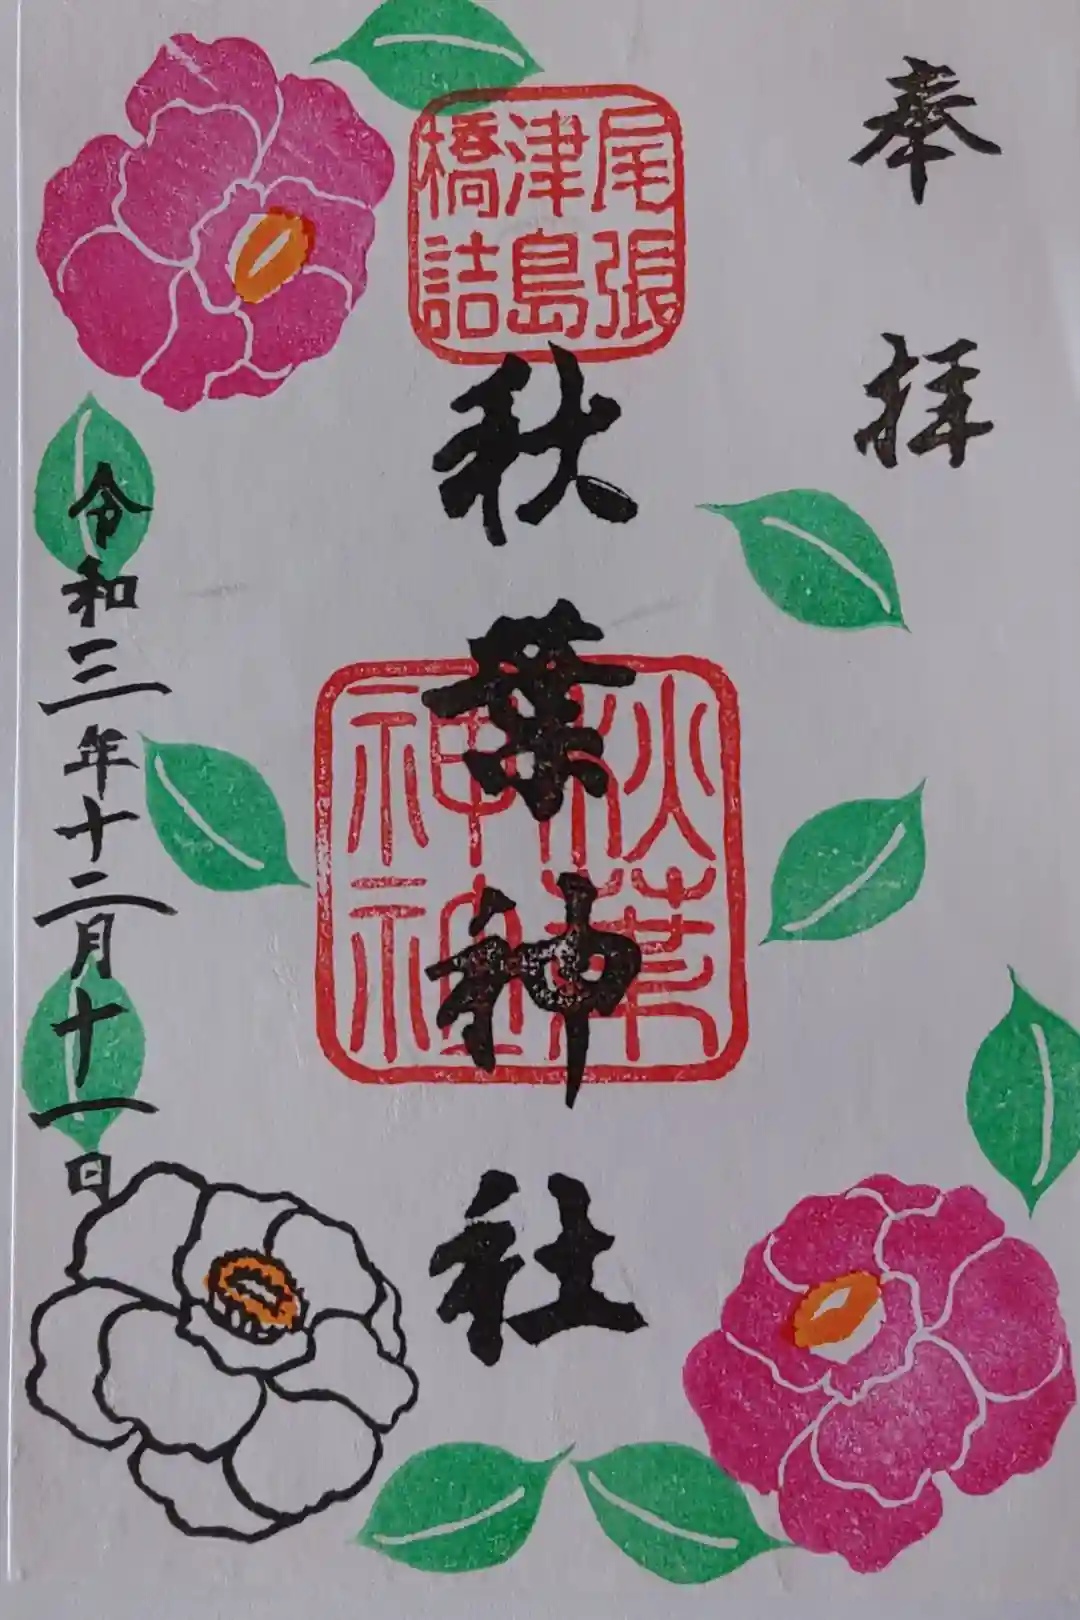 奉拝
尾張
津島
橋詰
秋葉神社
秋葉
神社
令和三年十二月十一日